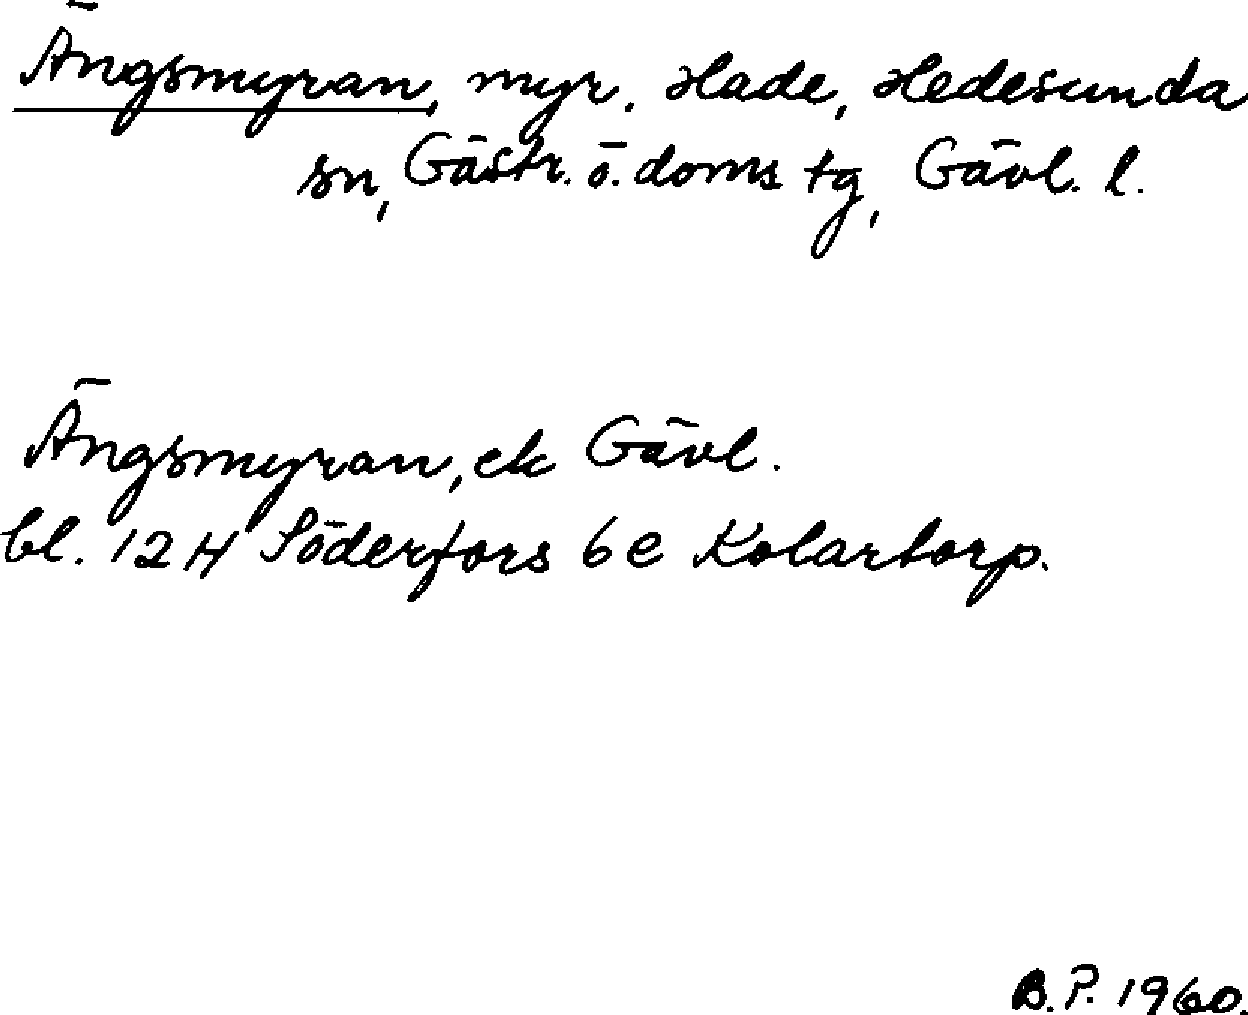 Ängsmyran, myr. Hade, Hedesunda
sn, Gästr. ö. doms tg, Gävl. l.
Ängsmyran, ek Gävl.
bl. 12H Söderfors 6e Kolartorp.
B.P. 1960.